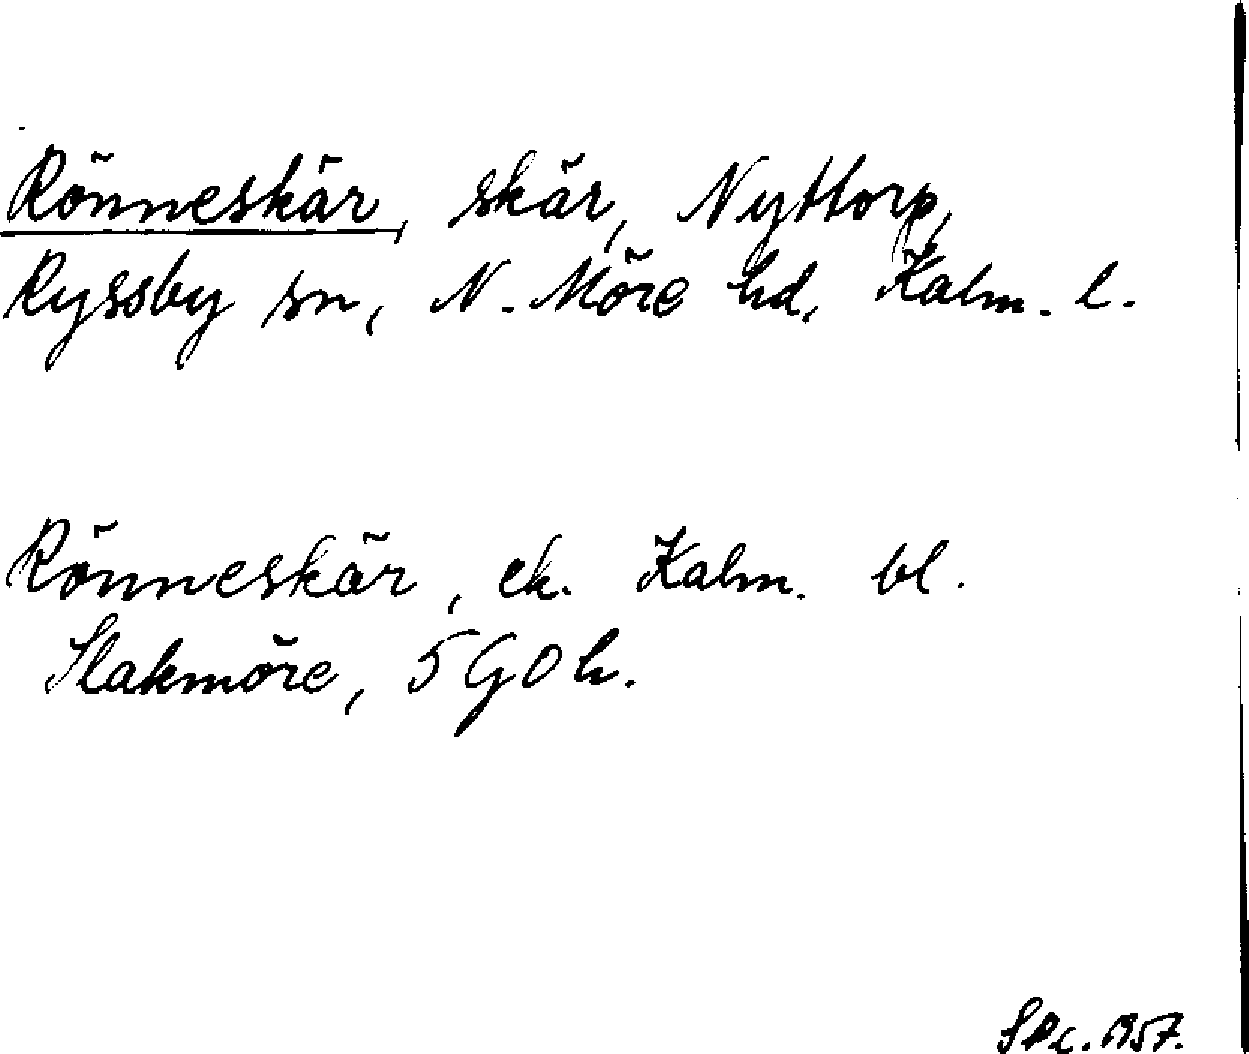 Rönneskär, skär, Nyttorp,
Ryssby sn, N. Möre hd, Kalm. l.
Rönneskär, ek. Kalm. bl.
Slakmöre, 5 G O h.
1957.